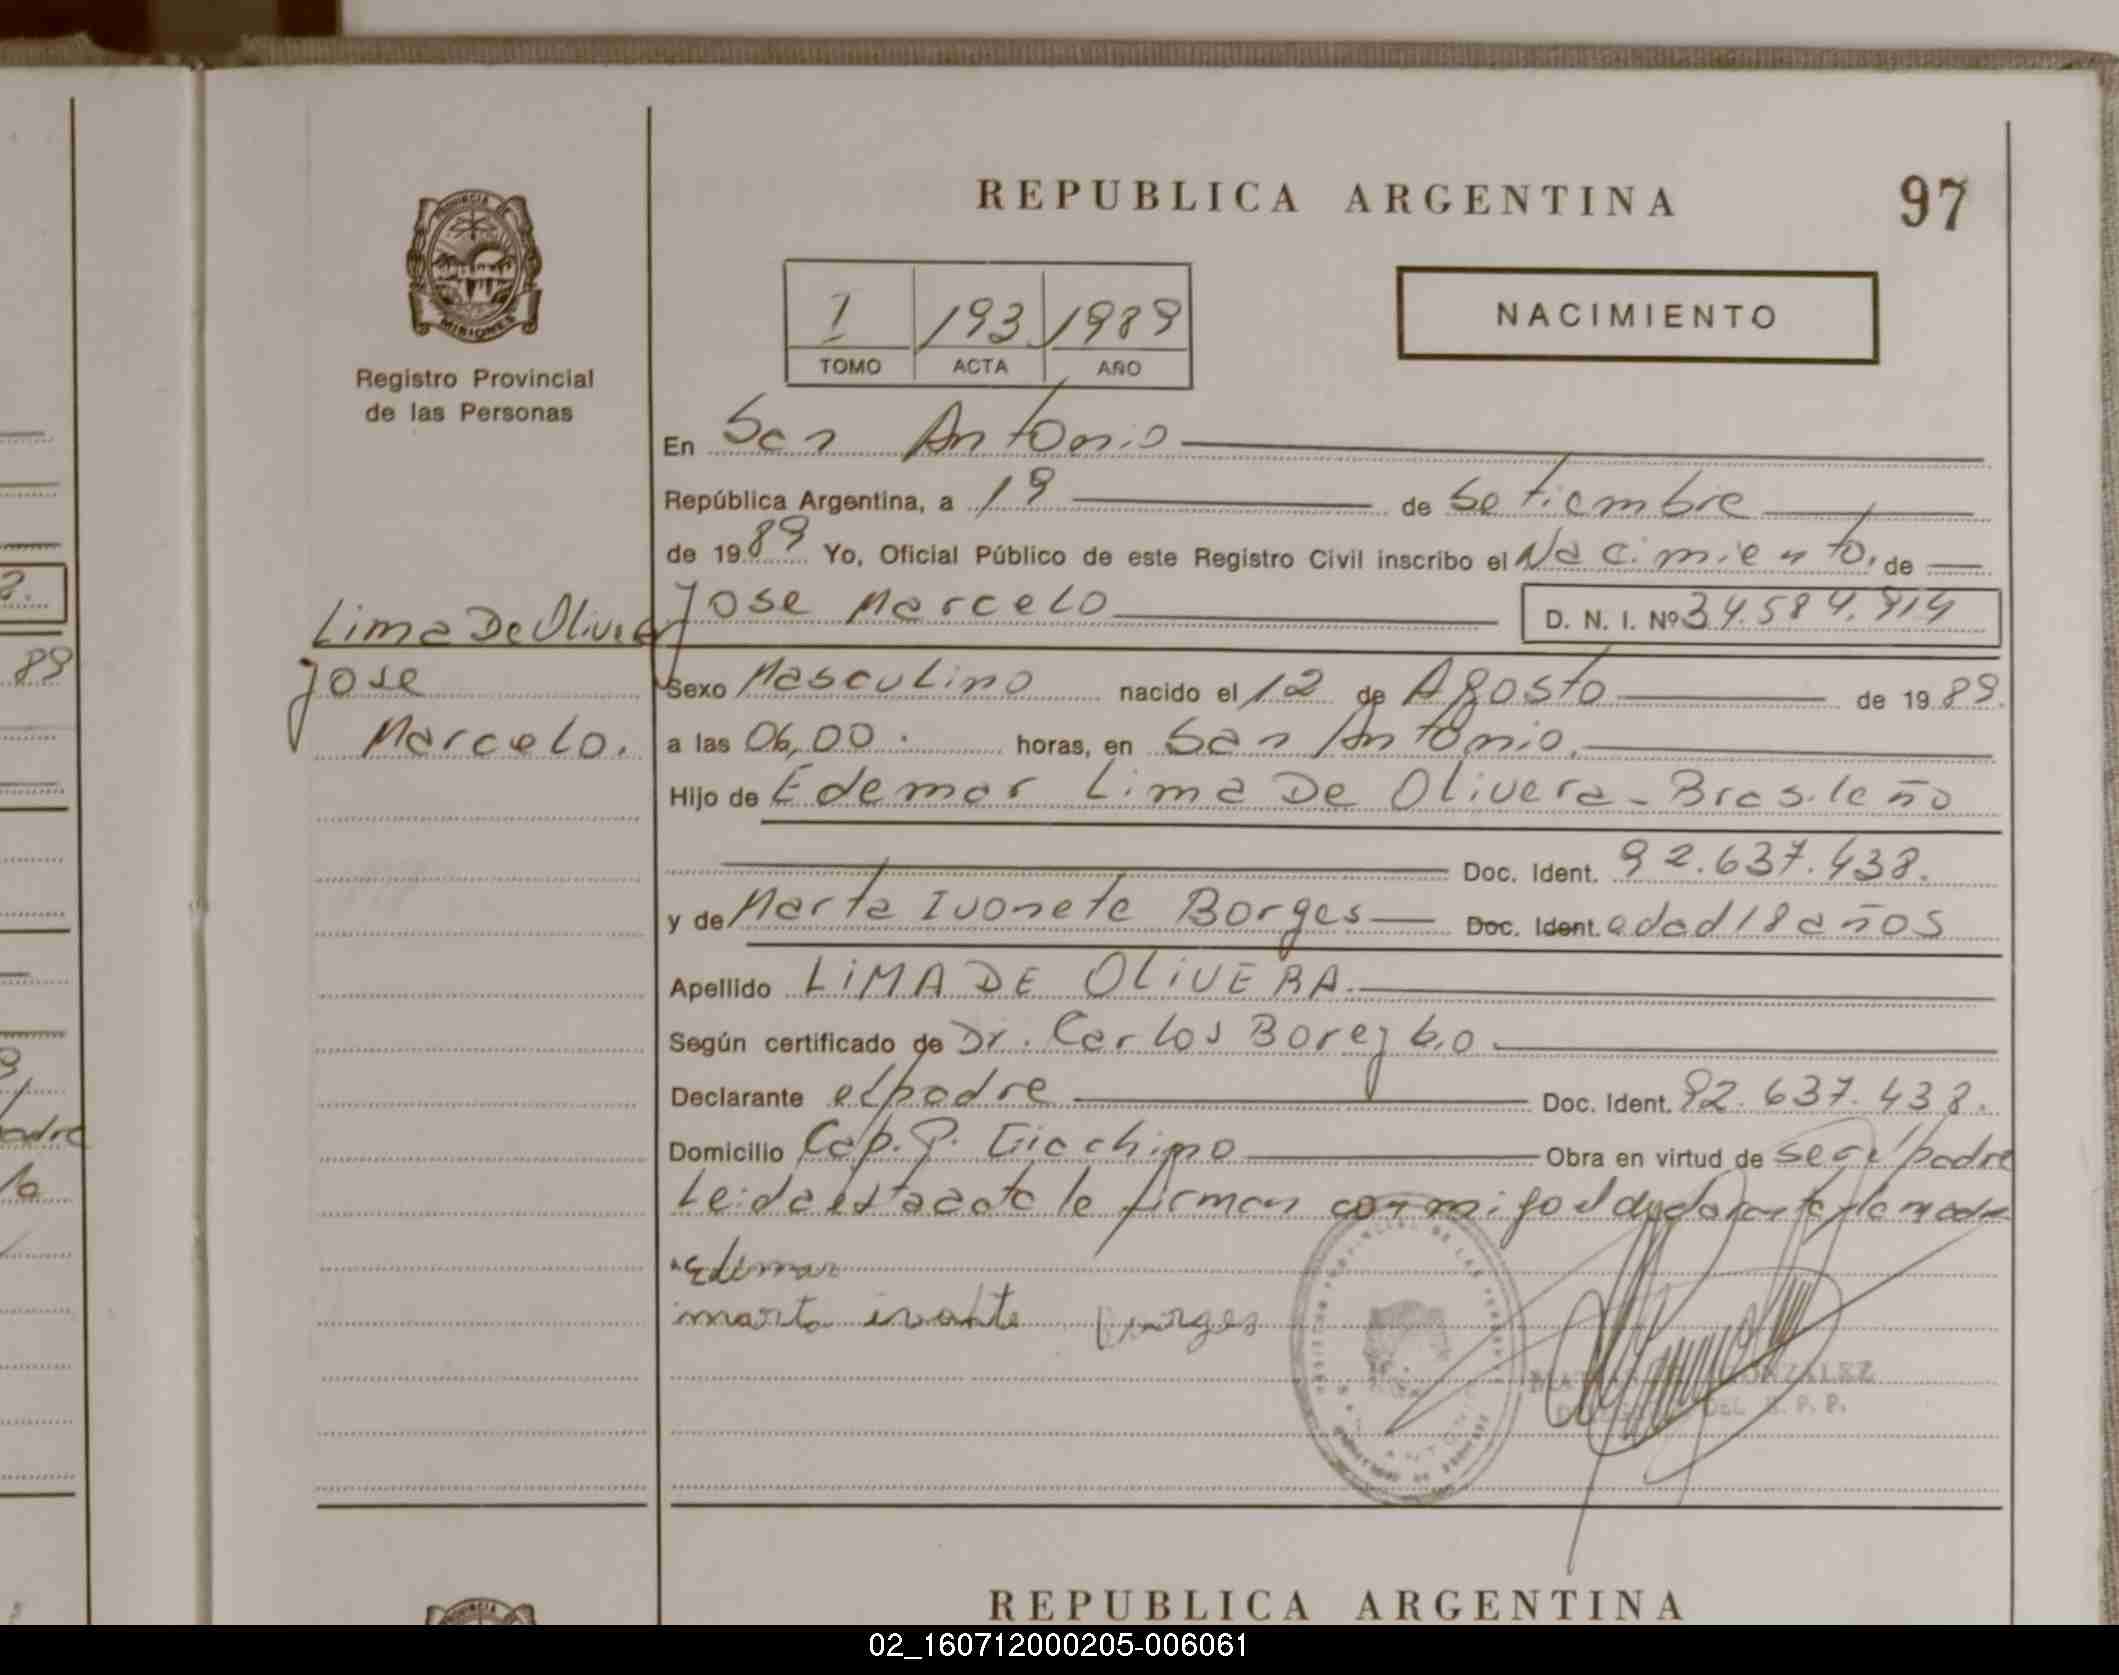 REPUBLICA ARGENTINA
97
PROVINCIA
MISIONES
Registro Provincial
de las Personas
I 193 1989
TOMO ACTA AÑO
NACIMIENTO
En San Antonio
República Argentina, a 19 de Setiembre
de 1989 Yo, Oficial Público de este Registro Civil inscribo el Nacimiento, de
Jose Marcelo D. N. I. Nº 34.584.914
Lima De Oliver
Jose
Marcelo.
Sexo Masculino nacido el 12 de Agosto de 1989.
a las 06,00. horas, en San Antonio.
Hijo de Edemar Lima De Olivera - Brasileño
Doc. Ident. 92.637.438.
y de Marta Ivonete Borges Doc. Ident. edad 18 años
Apellido LIMA DE OLIVERA.
Según certificado de Dr. Carlos
Declarante el padre Doc. Ident. 92.637.438.
Domicilio Cap. G. Giachino Obra en virtud de ser el padre
Leida esta acta le firman conmigo el declarante y la madre
Edemar
marta ivonte Borges
GONZALEZ
DEL R. P. P.
REPUBLICA ARGENTINA
PROVINCIA
89
02_160712000205-006061